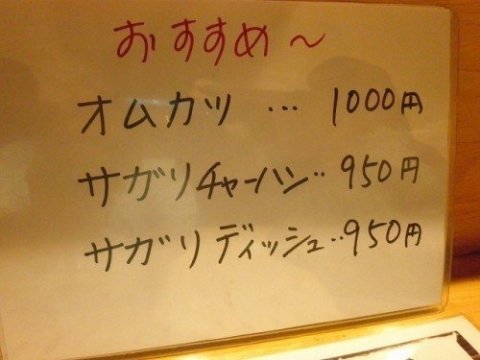 おすすめ〜
オムカツ … 1000円
サガリチャーハン‥950円
サガリディッシュ‥950円